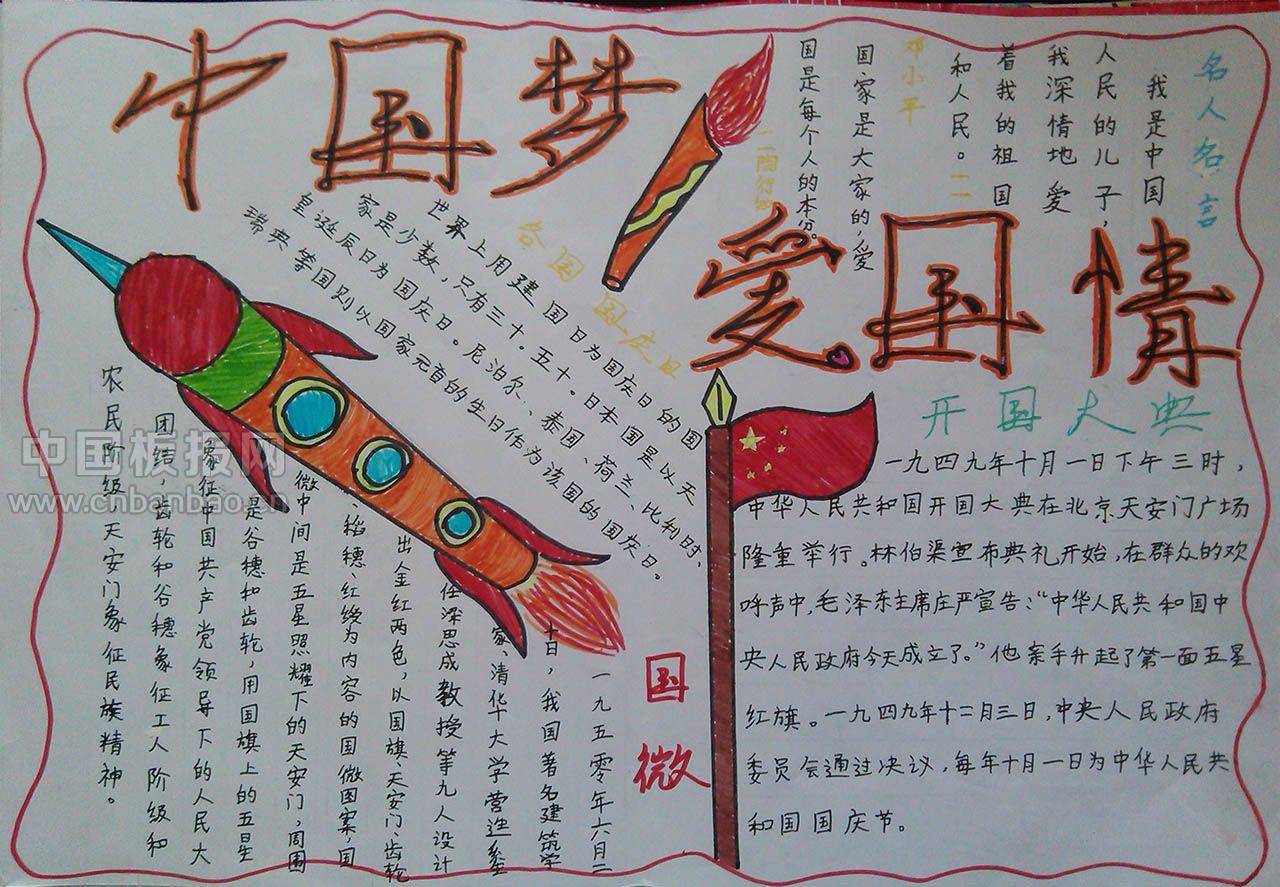 中国梦
爱国情
名人名言
我是中国
人民的儿子，
我深情地爱
着我的祖国
和人民。——
邓小平
国家是大家的，爱
国是每个人的本分。
——陶行知
各国国庆日
世界上用建国日为国庆日的国
家是少数，只有三十。五十。日本国是以天
皇诞辰日为国庆日。尼泊尔、泰国、荷兰、比利时、
瑞典等国则以国家元首的生日作为该国的国庆日。
开国大典
一九四九年十月一日下午三时，
中华人民共和国开国大典在北京天安门广场
隆重举行。林伯渠宣布典礼开始，在群众的欢
呼声中，毛泽东主席庄严宣告：“中华人民共和国中
央人民政府今天成立了。”他亲手升起了第一面五星
红旗。一九四九年十二月三日，中央人民政府
委员会通过决议，每年十月一日为中华人民共
和国国庆节。
国微
一九五零年六月二
十日，我国著名建筑学
家、清华大学营造系
任梁思成教授等九人设计
出金红两色，以国旗、天安门、齿轮
、稻穗、红绶为内容的国微图案，国
微中间是五星照耀下的天安门，周围
是谷穗和齿轮，用国旗上的五星
象征中国共产党领导下的人民大
团结，齿轮和谷穗象征工人阶级和
农民阶级，天安门象征民族精神。
中国板报网
www.cnbanbao.cn